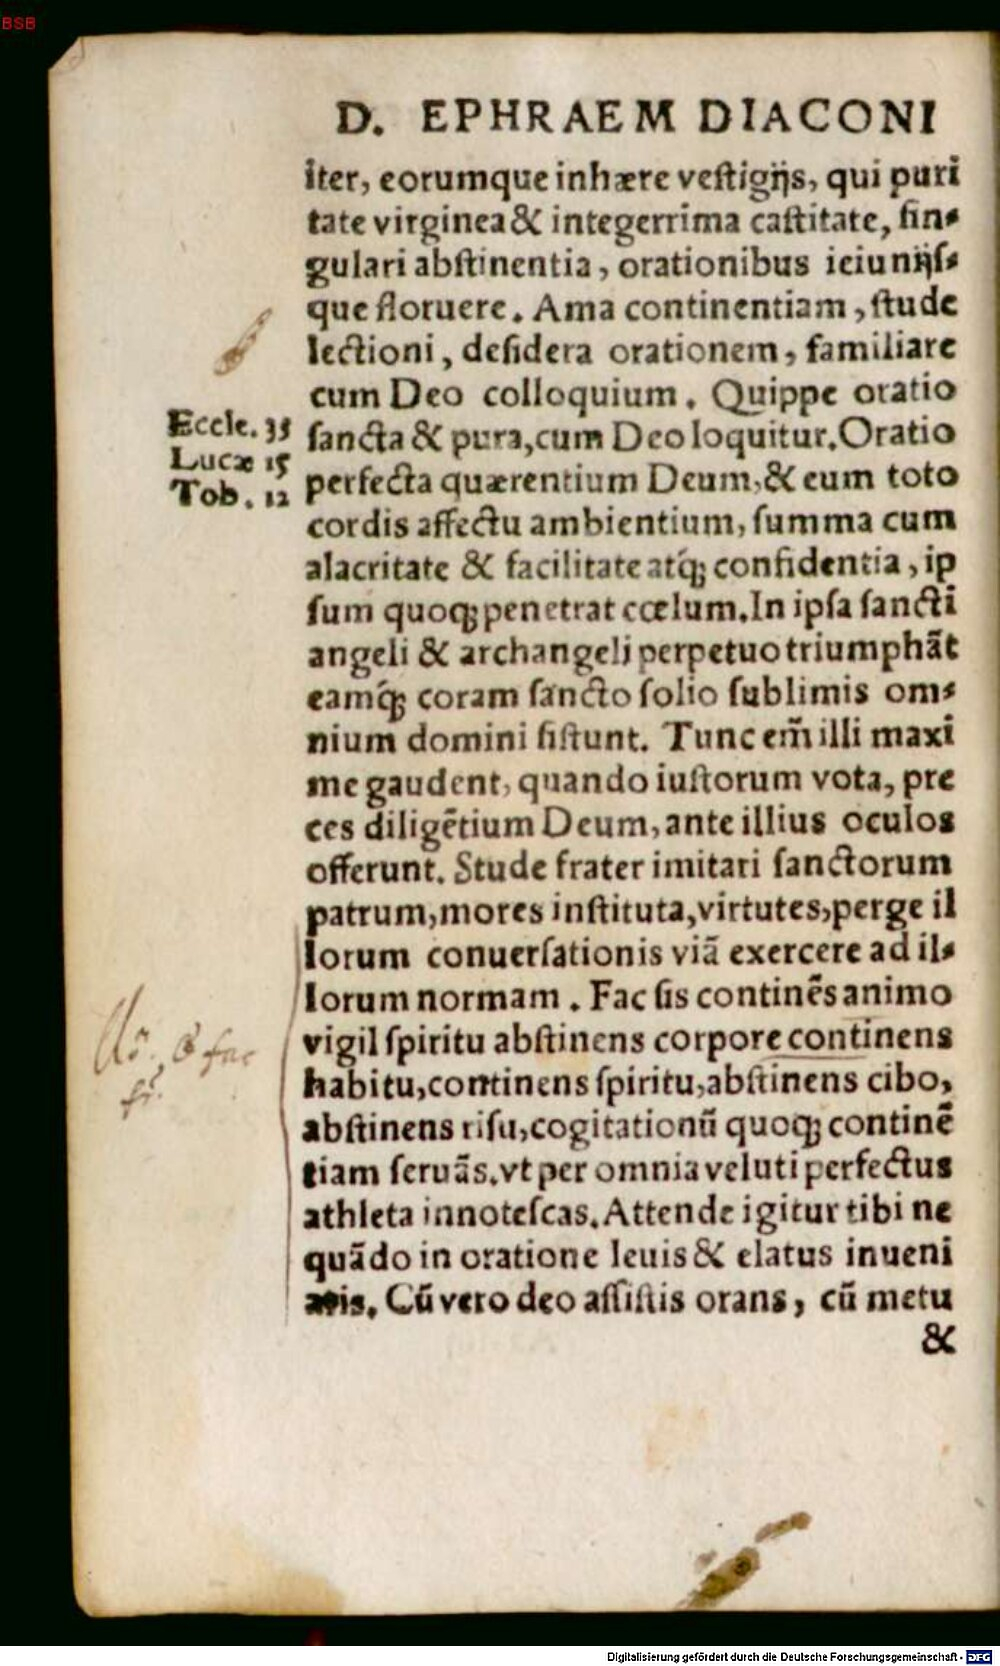 BSB
D. EPHRAEM DIACONI
iter, eorumque inhære veſtigijs, qui puri
tate virginea & integerrima caſtitate, ſin-
gulari abſtinentia, orationibus ieiunijſ-
que floruere. Ama continentiam, ſtude
lectioni, deſidera orationem, familiare
cum Deo colloquium. Quippe oratio
Eccle. 35
ſancta & pura, cum Deo loquitur. Oratio
Lucæ 15
perfecta quærentium Deum, & eum toto
Tob. 12
cordis affectu ambientium, ſumma cum
alacritate & facilitate atq́; confidentia, ip
ſum quoq; penetrat cœlum. In ipſa ſancti
angeli & archangeli perpetuo triumphãt
eamq́; coram ſancto ſolio ſublimis om-
nium domini ſiſtunt. Tunc em̃ illi maxi
me gaudent, quando iuſtorum vota, pre
ces diligẽtium Deum, ante illius oculos
offerunt. Stude frater imitari ſanctorum
patrum, mores inſtituta, virtutes, perge il
lorum conuerſationis viã exercere ad il-
lorum normam. Fac ſis continẽs animo
vigil ſpiritu abſtinens corpore continens
fac
habitu, continens ſpiritu, abſtinens cibo,
abſtinens riſu, cogitationũ quoq; continẽ
tiam ſeruãs. vt per omnia veluti perfectus
athleta innoteſcas. Attende igitur tibi ne
quãdo in oratione leuis & elatus inueni
aris. Cũ vero deo aſſiſtis orans, cũ metu
&
Digitalisierung gefördert durch die Deutsche Forschungsgemeinschaft - DFG